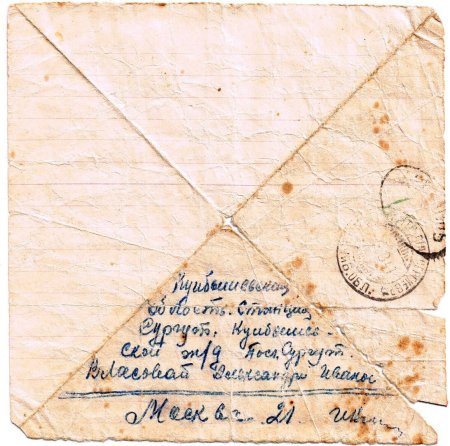 Куйбышевская
область. Станция
Сургут. Куйбышев-
ской ж/д пос. Сургут.
Власовой Александре Иванов
Москва 21